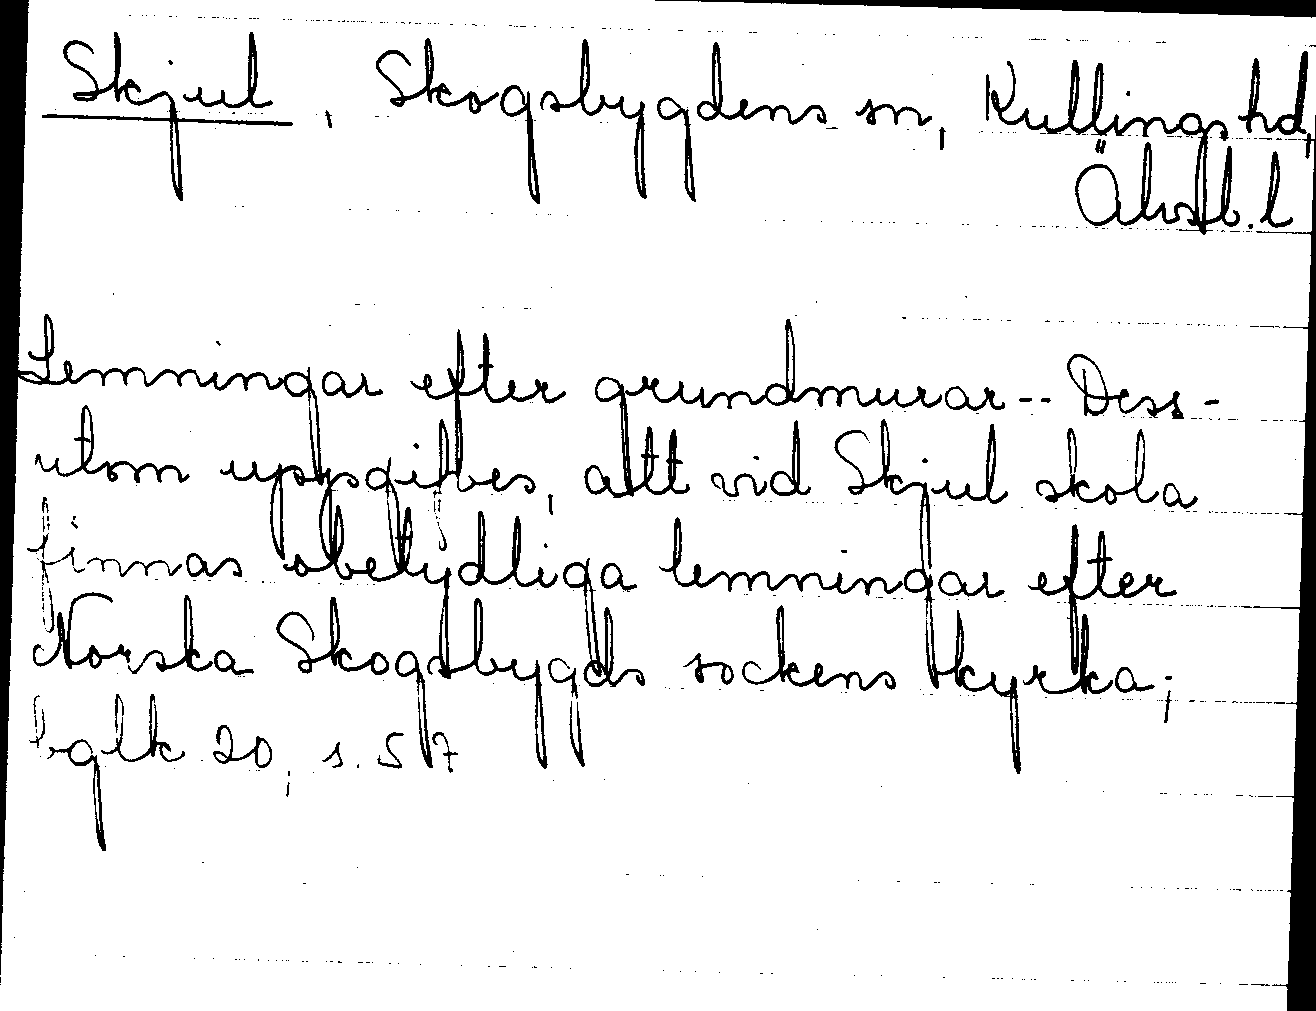 Skjul, Skogsbygdens sn, Kullings hd,
Älvsb. l
Lemningar efter grundmurar -- Dess-
utom uppgifves, att vid Skjul skola
finnas obetydliga lemningar efter
Norska Skogsbygds sockens kyrka;
bglk 20, s. 57